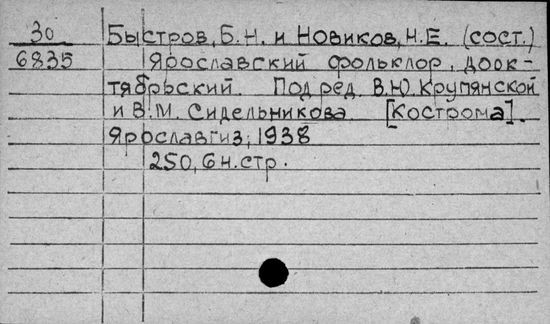 30 Быстров, Б.Н. и Новиков, Н.Е. (сост.)
6835 Ярославский фольклор, доок-
тябрьский. Под ред. В.Ю. Крупянской
и В.М. Сидельникова. [Кострома].
Ярославгиз, 1938
250, 6 н. стр.